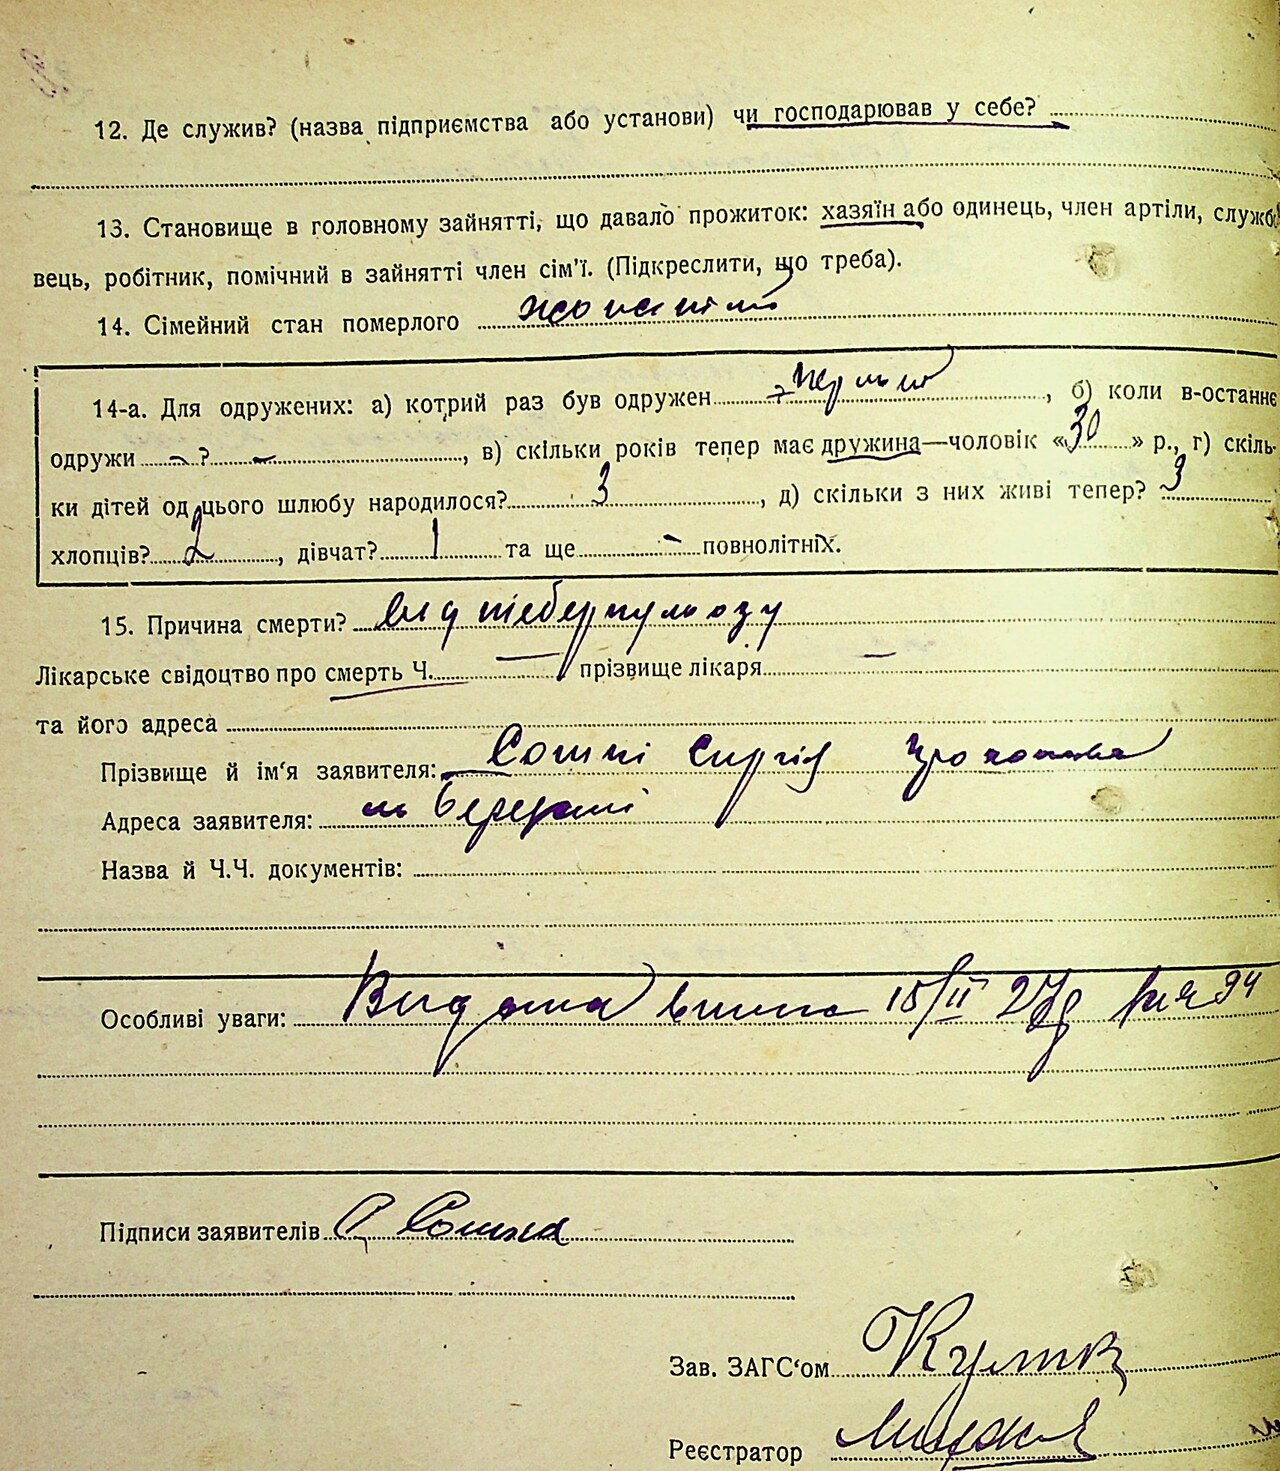 12. Де служив? (назва підприємства або установи) чи господарював у себе?
13. Становище в головному зайнятті, що давало прожиток: хазяїн або одинець, член артілі, службо
вець, робітник, помічний в зайнятті член сім'ї. (Підкреслити, що треба).
14. Сімейний стан померлого жонатий
14-а. Для одружених: а) котрий раз був одружен первий, б) коли в-останнє
одружи - ? -, в) скільки років тепер має дружина—чоловік «30» р., г) скіль-
ки дітей од цього шлюбу народилося? 3, д) скільки з них живі тепер? 3
хлопців? 2, дівчат? 1 та ще - повнолітніх.
15. Причина смерти? від туберкульозу
Лікарське свідоцтво про смерть Ч. — прізвище лікаря —
та його адреса
Прізвище й ім'я заявителя: Сергія
Адреса заявителя: м Березані
Назва й Ч.Ч. документів:
Особливі уваги: Видана 15/II 27р
Підписи заявителів
Зав. ЗАГС'ом
Реєстратор